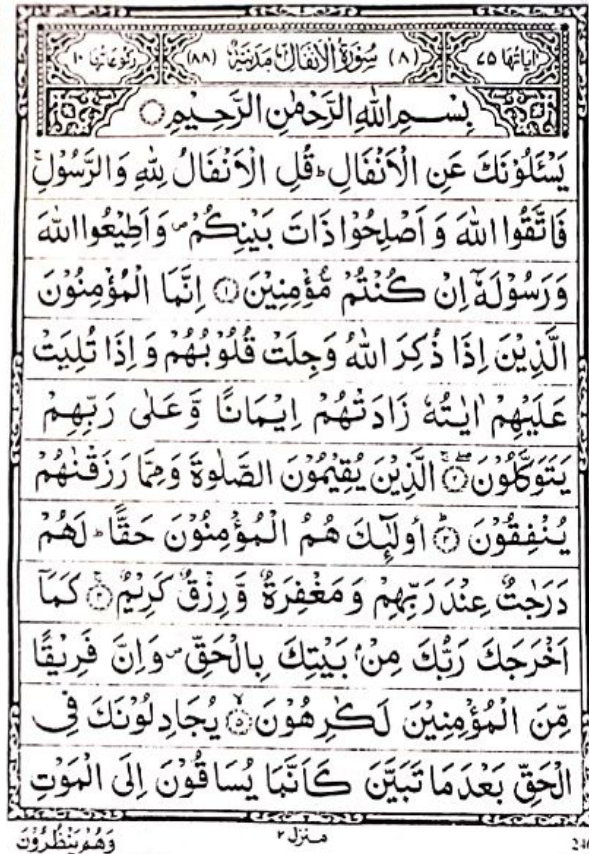 اٰيَاتُهَا ٧٥ (٨) سُوْرَةُ الْاَنْفَالِ مَدَنِيَّةٌ (٨٨) رُكُوْعَاتُهَا ١٠
بِسْمِ اللّٰهِ الرَّحْمٰنِ الرَّحِيْمِ
يَسْـَٔلُوْنَكَ عَنِ الْاَنْفَالِ ؕ قُلِ الْاَنْفَالُ لِلّٰهِ وَالرَّسُوْلِ ۚ
فَاتَّقُوا اللّٰهَ وَاَصْلِحُوْا ذَاتَ بَيْنِكُمْ ۪ وَاَطِيْعُوا اللّٰهَ
وَرَسُوْلَهٗۤ اِنْ كُنْتُمْ مُّؤْمِنِيْنَ ۝١ اِنَّمَا الْمُؤْمِنُوْنَ
الَّذِيْنَ اِذَا ذُكِرَ اللّٰهُ وَجِلَتْ قُلُوْبُهُمْ وَاِذَا تُلِيَتْ
عَلَيْهِمْ اٰيٰتُهٗ زَادَتْهُمْ اِيْمَانًا وَّعَلٰى رَبِّهِمْ
يَتَوَكَّلُوْنَ ۝٢ الَّذِيْنَ يُقِيْمُوْنَ الصَّلٰوةَ وَمِمَّا رَزَقْنٰهُمْ
يُنْفِقُوْنَ ۝٣ اُولٰٓئِكَ هُمُ الْمُؤْمِنُوْنَ حَقًّا ؕ لَهُمْ
دَرَجٰتٌ عِنْدَ رَبِّهِمْ وَمَغْفِرَةٌ وَّرِزْقٌ كَرِيْمٌ ۝٤ كَمَاۤ
اَخْرَجَكَ رَبُّكَ مِنْۢ بَيْتِكَ بِالْحَقِّ ۪ وَاِنَّ فَرِيْقًا
مِّنَ الْمُؤْمِنِيْنَ لَكٰرِهُوْنَ ۝٥ يُجَادِلُوْنَكَ فِى
الْحَقِّ بَعْدَ مَا تَبَيَّنَ كَاَنَّمَا يُسَاقُوْنَ اِلَى الْمَوْتِ
وَهُمْ يَنْظُرُوْنَ منزل ٢